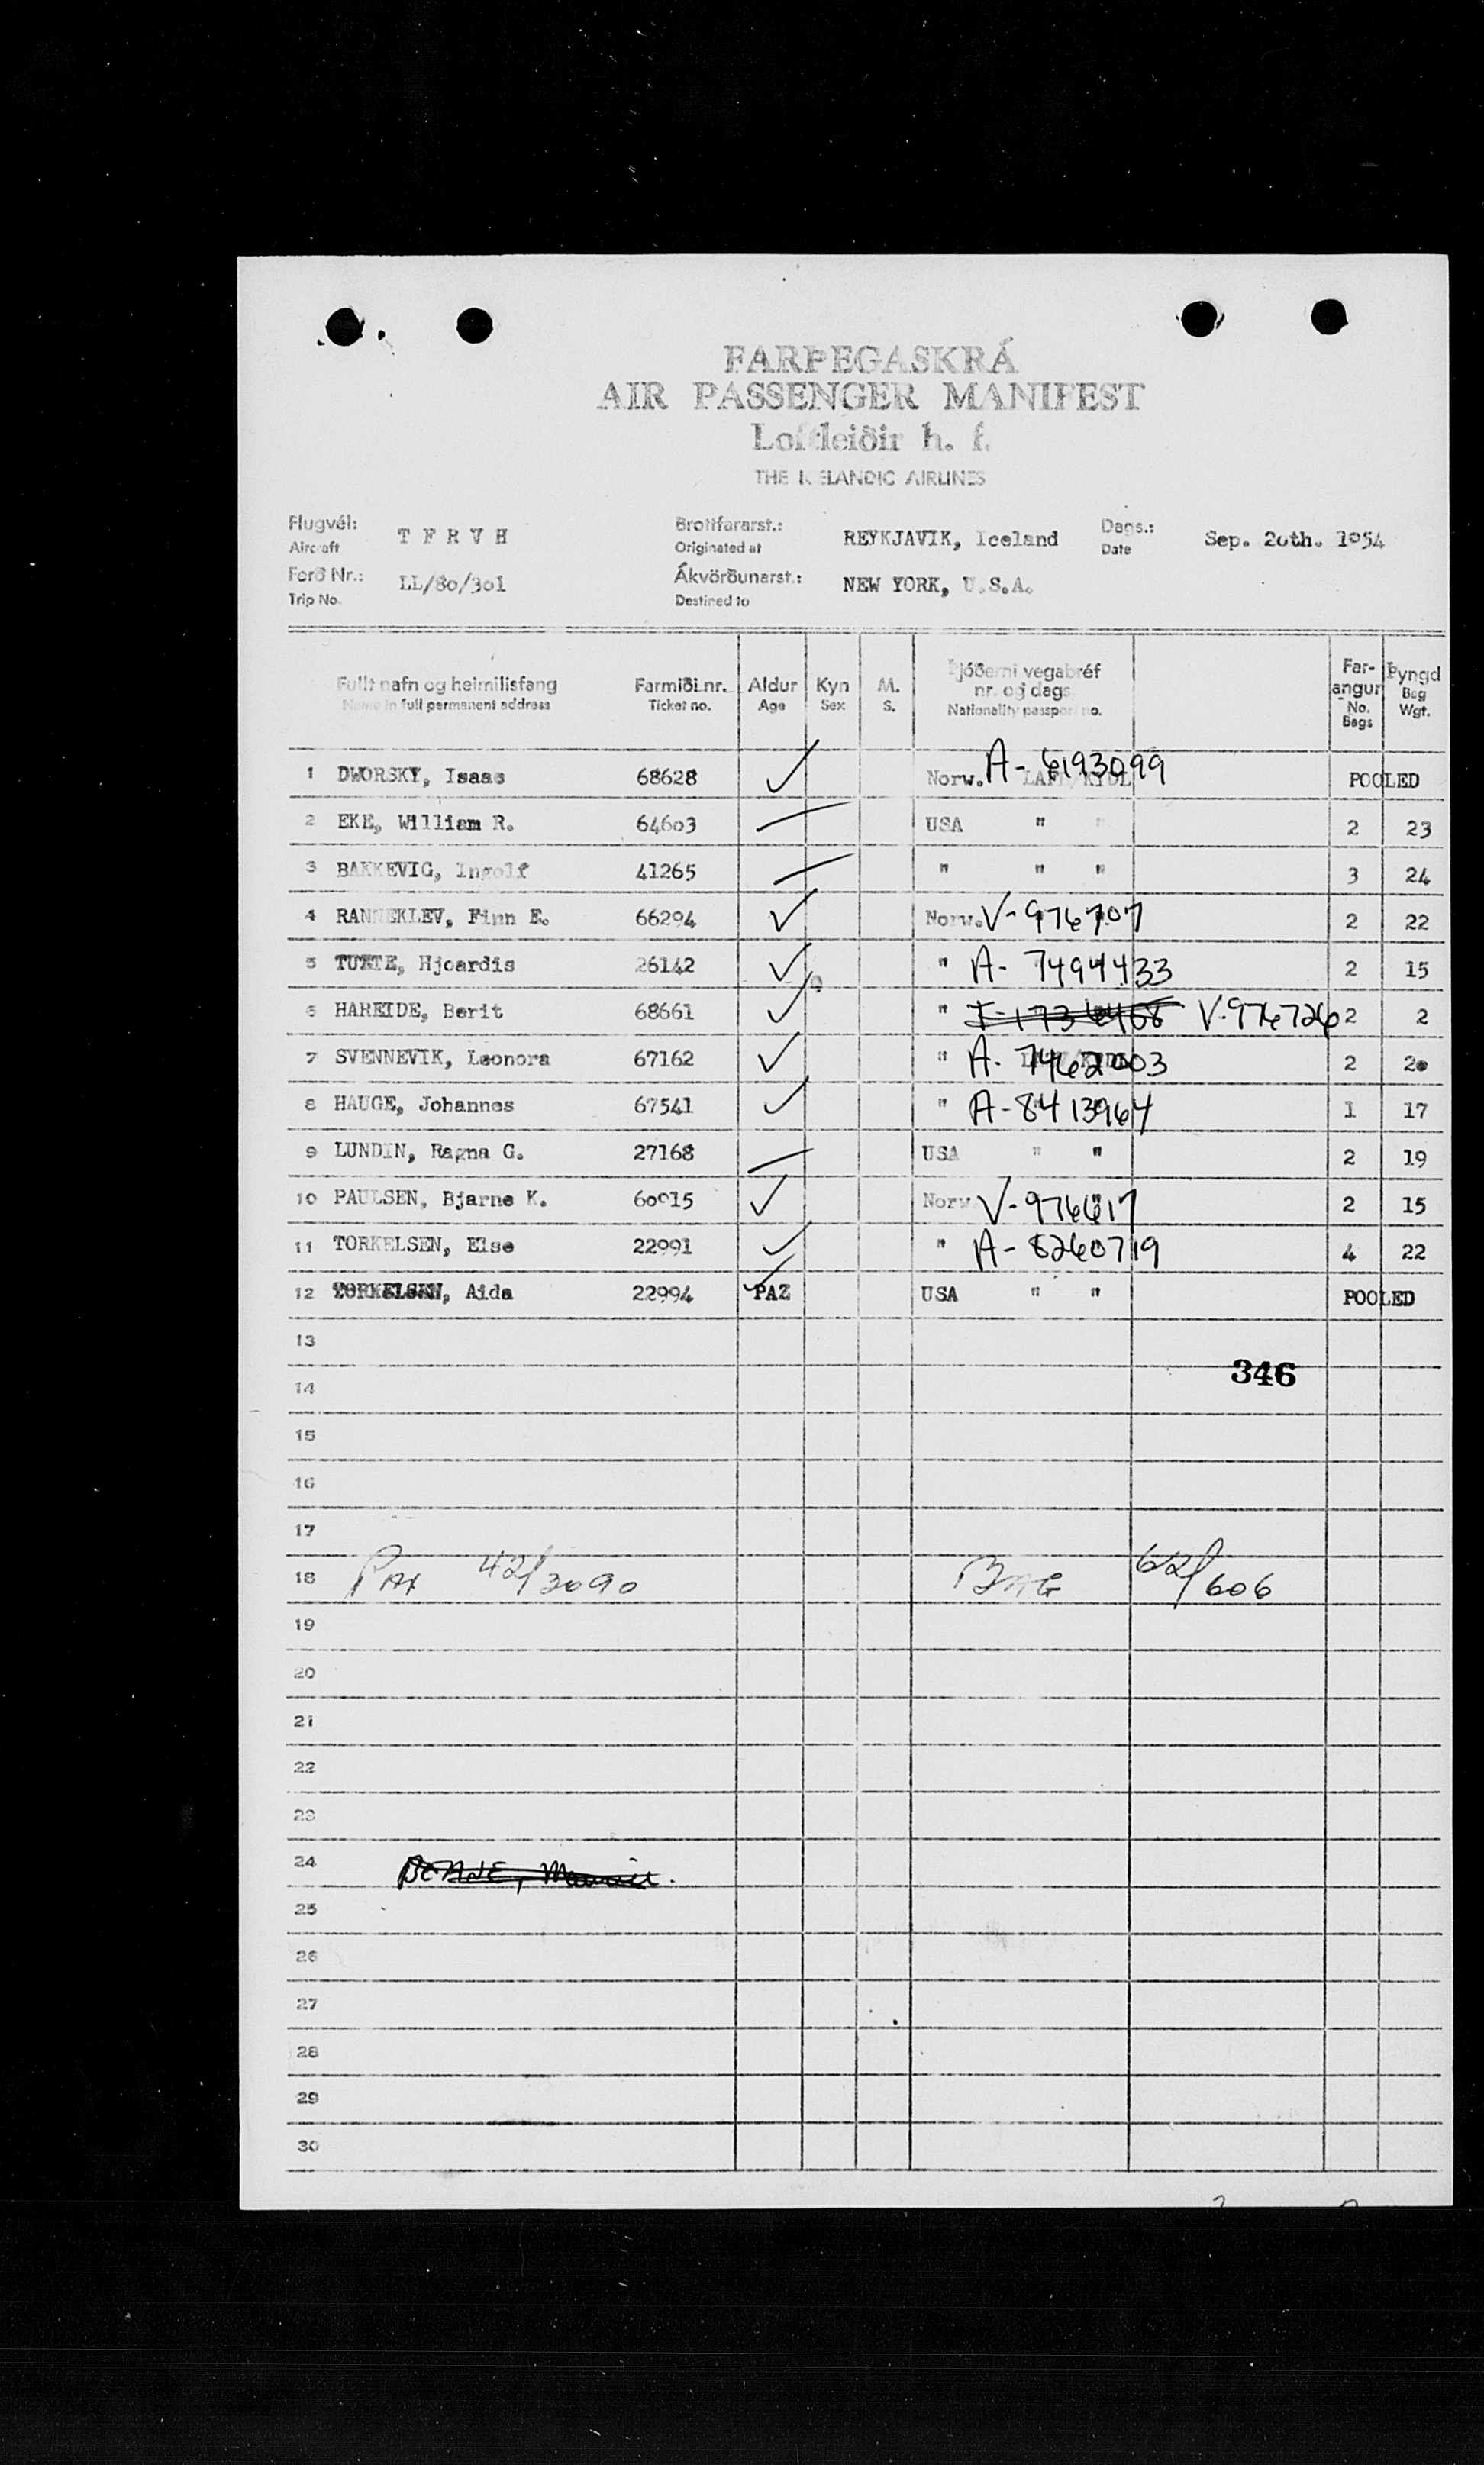 FARÞEGASKRÁ
AIR PASSENGER MANIFEST
Loftleiðir h. f.
THE ICELANDIC AIRLINES
Flugvél: T F R V H Brottfararst.: REYKJAVIK, Iceland Dags.: Sep. 2oth. 1954
Aircraft Originated at Date
Ferð Nr.: LL/8o/3o1 Ákvörðunarst.: NEW YORK, U.S.A.
Trip No. Destined to
Fullt nafn og heimilisfang Farmiði nr. Aldur Kyn M. Þjóðerni vegabréf nr. og dags. Far-angur Þyngd
Name in full permanent address Ticket no. Age Sex S. Nationality passport no. No. Bags Bag Wgt.
1 DWORSKY, Isaac 68628 ✓ Norw. A-6193099 POOLED
2 EKE, William R. 646o3 — USA " " 2 23
3 BAKKEVIG, Ingolf 41265 — " " " 3 24
4 RANNEKLEV, Finn E. 66294 ✓ Norw. V-976707 2 22
5 TUFTE, Hjoardis 26142 ✓ " A-7494433 2 15
6 HAREIDE, Berit 68661 ✓ " V-976726 2 2
7 SVENNEVIK, Leonora 67162 ✓ " A-7462003 2 2o
8 HAUGE, Johannes 67541 ✓ " A-8413964 1 17
9 LUNDIN, Ragna G. 27168 — USA " " 2 19
10 PAULSEN, Bjarne K. 6oo15 ✓ Norw V-976617 2 15
11 TORKELSEN, Else 22991 ✓ " A-8260719 4 22
12 TORKELSEN, Aida 22994 ✓ PAZ USA " " POOLED
13
346
14
15
16
17
18 PAX 42/3090 BAG 62/606
19
20
21
22
23
24
25
26
27
28
29
30